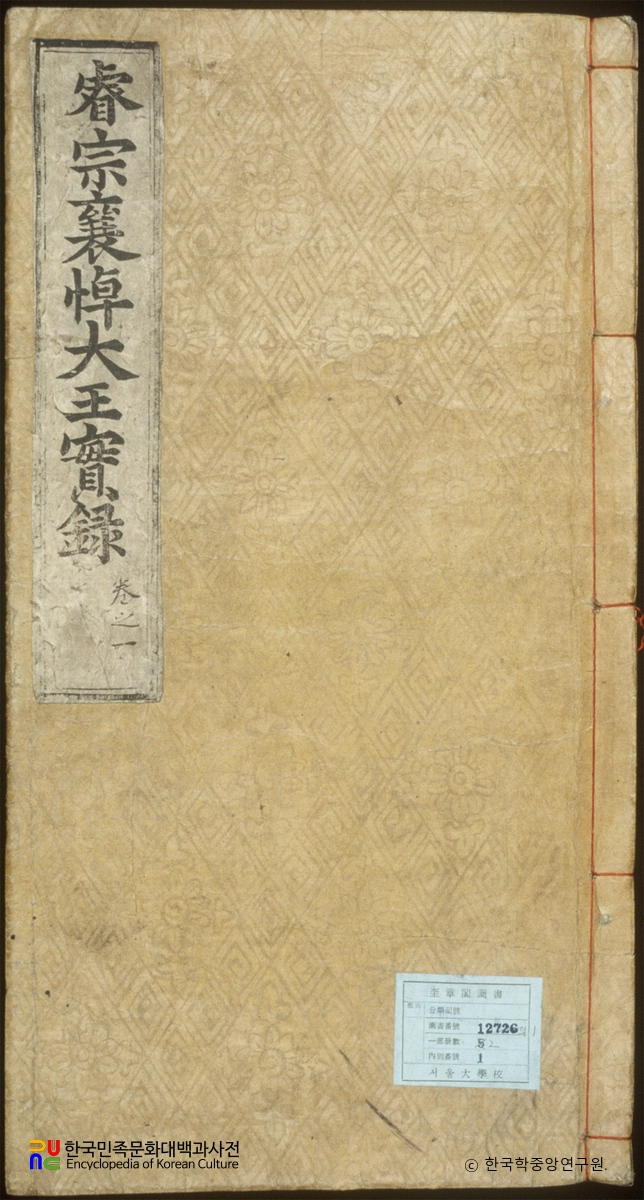 睿宗襄悼大王實錄
卷之一
奎章閣圖書
分類記號
圖書番號 12726
一部冊數 2
內別番號 1
서울大學校
한국민족문화대백과사전
Encyclopedia of Korean Culture
© 한국학중앙연구원.